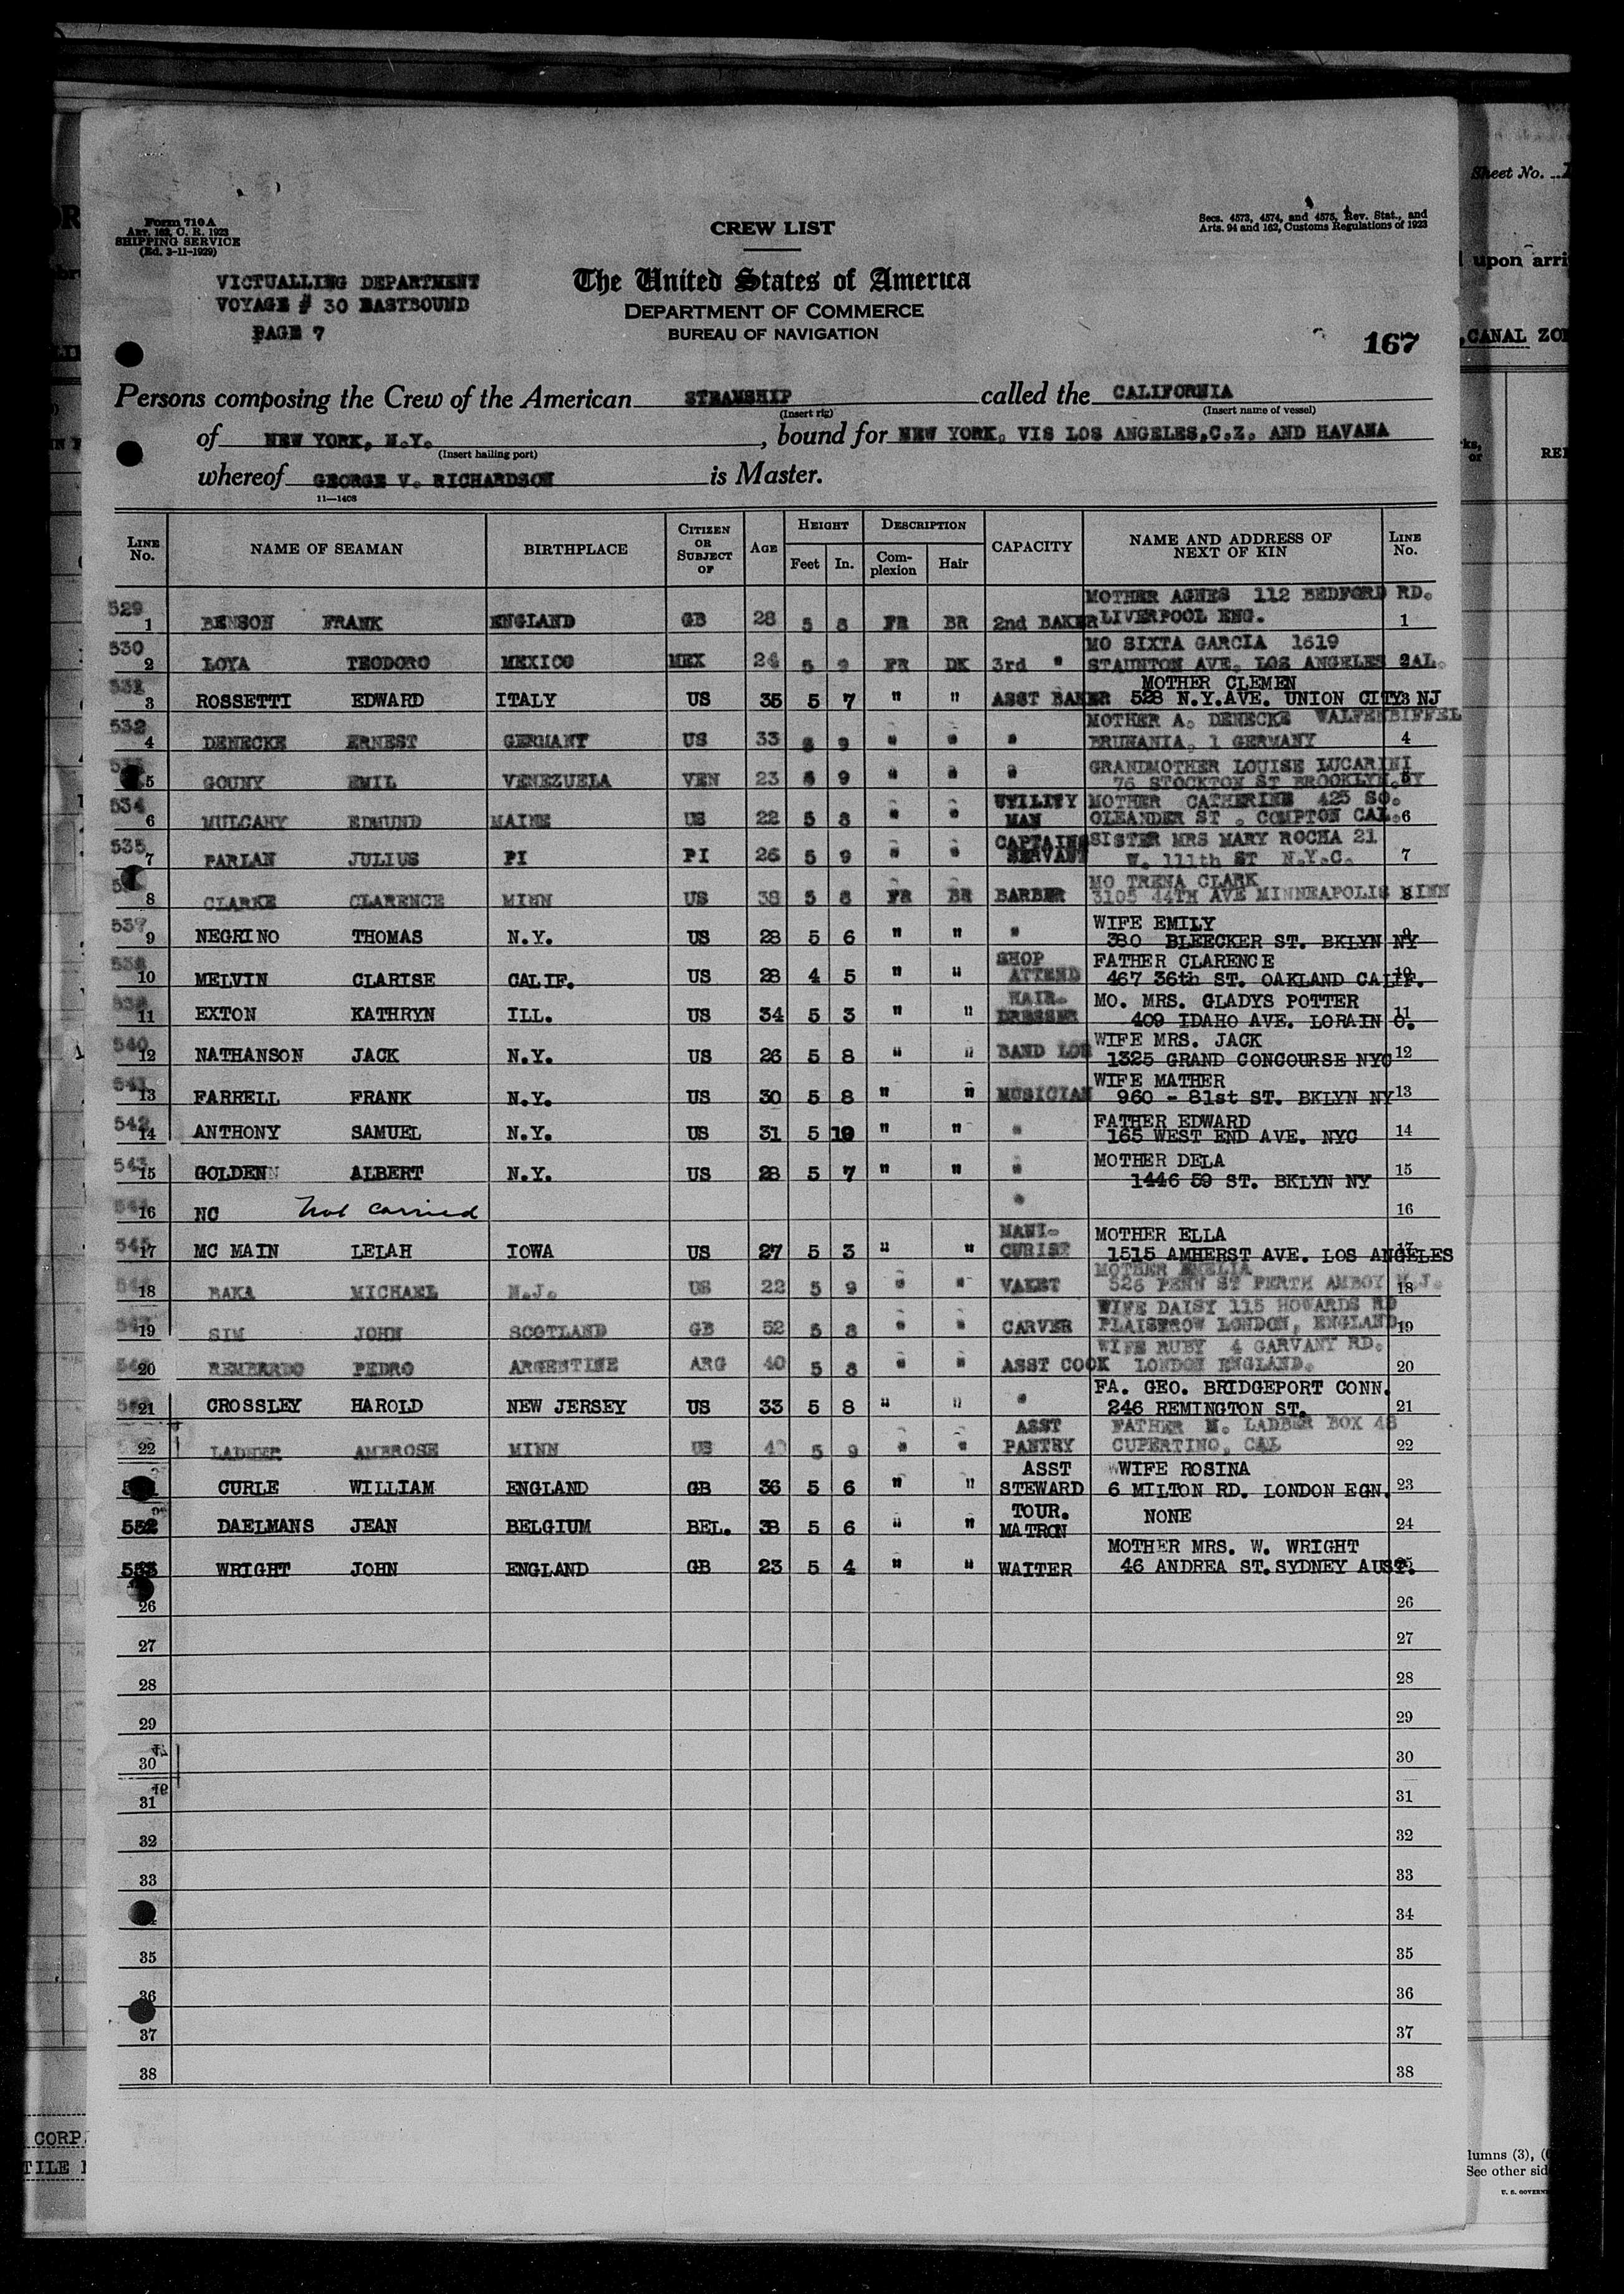 Sheet No.
Form 710 A
Art. 162, C. R. 1923
SHIPPING SERVICE
(Ed. 3-11-1929)
CREW LIST
Secs. 4573, 4574, and 4575, Rev. Stat., and
Arts. 94 and 162, Customs Regulations of 1923
VICTUALLING DEPARTMENT
VOYAGE # 30 EASTBOUND
PAGE 7
The United States of America
DEPARTMENT OF COMMERCE
BUREAU OF NAVIGATION
upon arri
167
CANAL ZO
Persons composing the Crew of the American STEAMSHIP called the CALIFORNIA
(Insert rig) (Insert name of vessel)
of NEW YORK, N.Y. , bound for NEW YORK, VIS LOS ANGELES,C.Z. AND HAVANA
(Insert hailing port)
whereof GEORGE V. RICHARDSON is Master.
11—1408
LINE No. NAME OF SEAMAN BIRTHPLACE CITIZEN OR SUBJECT OF AGE HEIGHT Feet In. DESCRIPTION Complexion Hair CAPACITY NAME AND ADDRESS OF NEXT OF KIN LINE No.
MOTHER AGNES 112 BEDFORD RD.
529 1 BENSON FRANK ENGLAND GB 28 5 8 FR BR 2nd BAKER LIVERPOOL ENG. 1
MO SIXTA GARCIA 1619
530 2 LOYA TEODORO MEXICO MEX 24 5 9 FR DK 3rd " STAUNTON AVE. LOS ANGELES CAL. 2
MOTHER CLEMEN
531 3 ROSSETTI EDWARD ITALY US 35 5 7 " " ASST BAKER 528 N.Y.AVE. UNION CITY NJ 3
MOTHER A. DENECKE WALFENBIFFEL
532 4 DENECKE ERNEST GERMANY US 33 5 9 " " " BRUNANIA, 1 GERMANY 4
GRANDMOTHER LOUISE LUCARINI
5 GOUNY EMIL VENEZUELA VEN 23 5 9 " " " 76 STOCKTON ST BROOKLYN.NY 5
UTILITY MOTHER CATHERINE 425 SO.
534 6 MULCAHY EDMUND MAINE US 22 5 8 " " MAN OLEANDER ST . COMPTON CAL. 6
CAPTAINS SISTER MRS MARY ROCHA 21
535 7 PARLAN JULIUS PI PI 26 5 9 " " SERVANT W. 111th ST N.Y.C. 7
MO TRENA CLARK
8 CLARKE CLARENCE MINN US 38 5 8 FR BR BARBER 3105 44TH AVE MINNEAPOLIS MINN 8
WIFE EMILY
537 9 NEGRINO THOMAS N.Y. US 28 5 6 " " " 380 BLEECKER ST. BKLYN NY 9
SHOP FATHER CLARENCE
538 10 MELVIN CLARISE CALIF. US 28 4 5 " " ATTEND 467 36th ST. OAKLAND CALIF. 10
HAIR- MO. MRS. GLADYS POTTER
539 11 EXTON KATHRYN ILL. US 34 5 3 " " DRESSER 409 IDAHO AVE. LORAIN O. 11
WIFE MRS. JACK
540 12 NATHANSON JACK N.Y. US 26 5 8 " " BAND LDR 1325 GRAND CONCOURSE NYC 12
WIFE MATHER
541 13 FARRELL FRANK N.Y. US 30 5 8 " " MUSICIAN 960 - 81st ST. BKLYN NY 13
FATHER EDWARD
542 14 ANTHONY SAMUEL N.Y. US 31 5 10 " " " 165 WEST END AVE. NYC 14
MOTHER DELA
543 15 GOLDENN ALBERT N.Y. US 28 5 7 " " " 1446 59 ST. BKLYN NY 15
544 16 NC Not carried " 16
MANI- MOTHER ELLA
545 17 MC MAIN LELAH IOWA US 27 5 3 " " CURIST 1515 AMHERST AVE. LOS ANGELES 17
MOTHER EMELIA
18 BAKA MICHAEL N.J. US 22 5 9 " " VALET 526 PENN ST PERTH AMBOY N.J. 18
WIFE DAISY 115 HOWARDS RD
19 SIM JOHN SCOTLAND GB 52 5 8 " " CARVER PLAISTROW LONDON, ENGLAND 19
WIFE RUBY 4 GARVANY RD.
20 REMBERDO PEDRO ARGENTINE ARG 40 5 8 " " ASST COOK LONDON ENGLAND. 20
FA. GEO. BRIDGEPORT CONN.
21 CROSSLEY HAROLD NEW JERSEY US 33 5 8 " " " 246 REMINGTON ST. 21
ASST FATHER M. LADBER BOX 48
22 LADNER AMBROSE MINN US 40 5 9 " " PANTRY CUPERTINO, CAL 22
ASST WIFE ROSINA
CURLE WILLIAM ENGLAND GB 36 5 6 " " STEWARD 6 MILTON RD. LONDON EGN. 23
TOUR. NONE
552 DAELMANS JEAN BELGIUM BEL. 38 5 6 " " MATRON 24
MOTHER MRS. W. WRIGHT
553 WRIGHT JOHN ENGLAND GB 23 5 4 " " WAITER 46 ANDREA ST.SYDNEY AUST. 25
26 26
27 27
28 28
29 29
30 30
31 31
32 32
33 33
34
35 35
36 36
37 37
38 38
CORP.
TILE
lumns (3), (6
See other sid
U. S. GOVERN